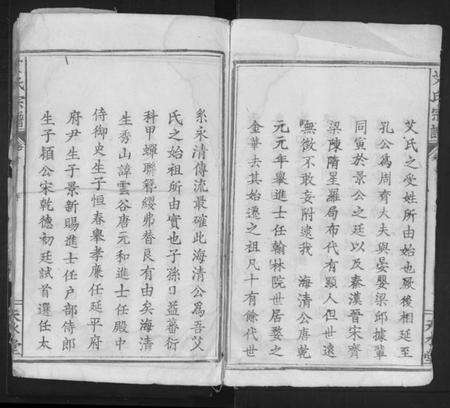 艾氏之受姓所由始也厥後相延至
孔公爲周齊大夫與晏嬰梁邱據輩
同寅於景公之廷以及秦漢晉宋齊
梁陳隋星羅局布代有顯人但世遠
無徵不敢妄附逮我 海清公唐乾
元元年舉進士任翰林院世居婺之
金華夫其始遷之祖凡十有餘代世
系永清傳流最確此海清公爲吾艾
氏之始祖所由實也子孫日益蕃衍
科甲蟬聯簪纓弗替良有由矣海清
生秀山諱雲谷唐元和進士任殿中
侍御史生子恒春舉孝廉任延平府
府尹生子景新賜進士任户部侍郎
生子穎公宋乾德初廷試首選任太
艾氏宗譜
天水堂